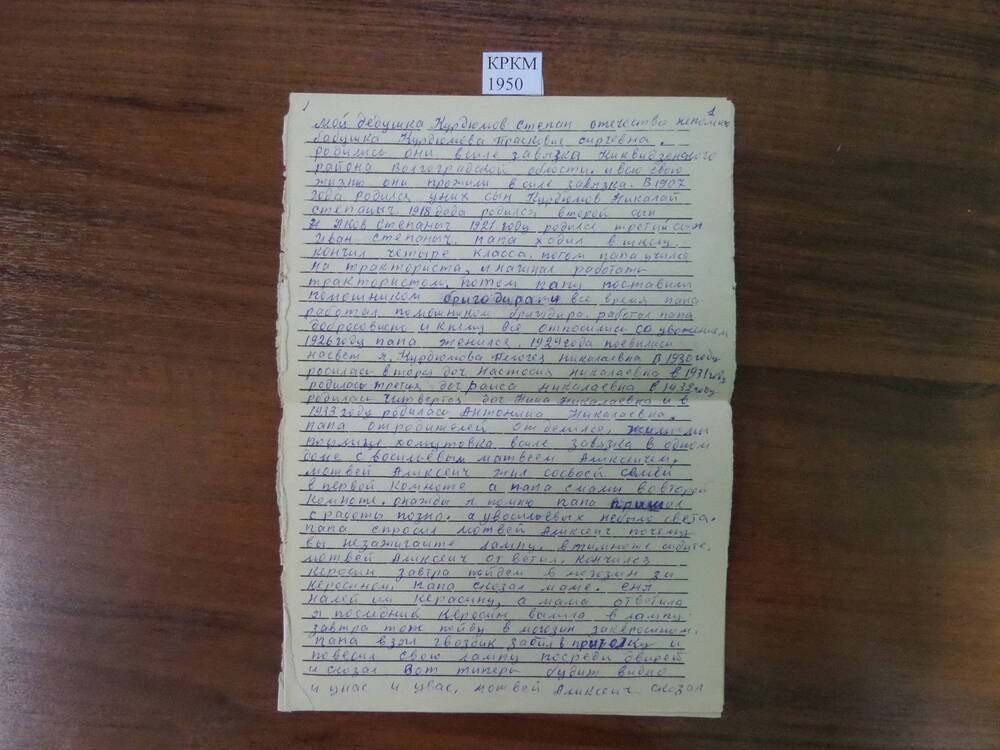 КРКМ
1950
1 1
мой дедушка Курдюмов Степан отечества непомню
бабушка Курдюмова Прасковие сиргевна.
родились они всиле завязка Киквидзенского
района Волгоградской области. ивсю свою
жизню они прожили в силе завязка. В 1907
года родился уних сын Курдюмов Николай
степаныч. 1918 года родился второй сын
Яков Степаныч 1921 году родился третий сын
Иван степаныч. папа ходил вшколу.
кончил четыре класса. потом папа учился
на тракториста, и начинал работать
трактористом. потом папу поставили
помошником бригадира и все время папа
работал помошником бригадира. работал папа
добросовисно и кнему все относились со уважением
1926 году папа женился. 1929 года поевилась
насвет я, Курдюмова Николаевна В 1930 году
родилась вторая доч Настасия николаевна в 1931 году
родилась третия доч раиса николаевна в 1932 году
родилась четвертоя доч Нина Николаевна и в
1933 году родилась Антонина Николаевна.
папа отродителей отделился, жили мы
поулице хомутовка всиле завязка в одном
доме с восильевым матвеем Аликсеичем.
мотвей Аликсеич жил сосвоей семей
в первой комноте а папа смами вовторой
комноте. онажды я помню папа пришол
с работы позно. а увосильевых небыло света.
папа спросил мотвей Аликсеич почему
вы незажигаите лампу. втимноте сидите.
мотвей Аликсеич ответил. Кончился
керосин завтра пойдем в могозин за
керосином. папа сказал маме.
налей им керасину, а мама ответила
я последний керосин вылила в лампу
завтра тож пойду в могозин закеросином.
папа взял гвоздик забил в притолку и
повесил свою лампу посреди двирей
и сказал Вот типерь будит видно
и унас и увас, мотвей Аликсеич сказал